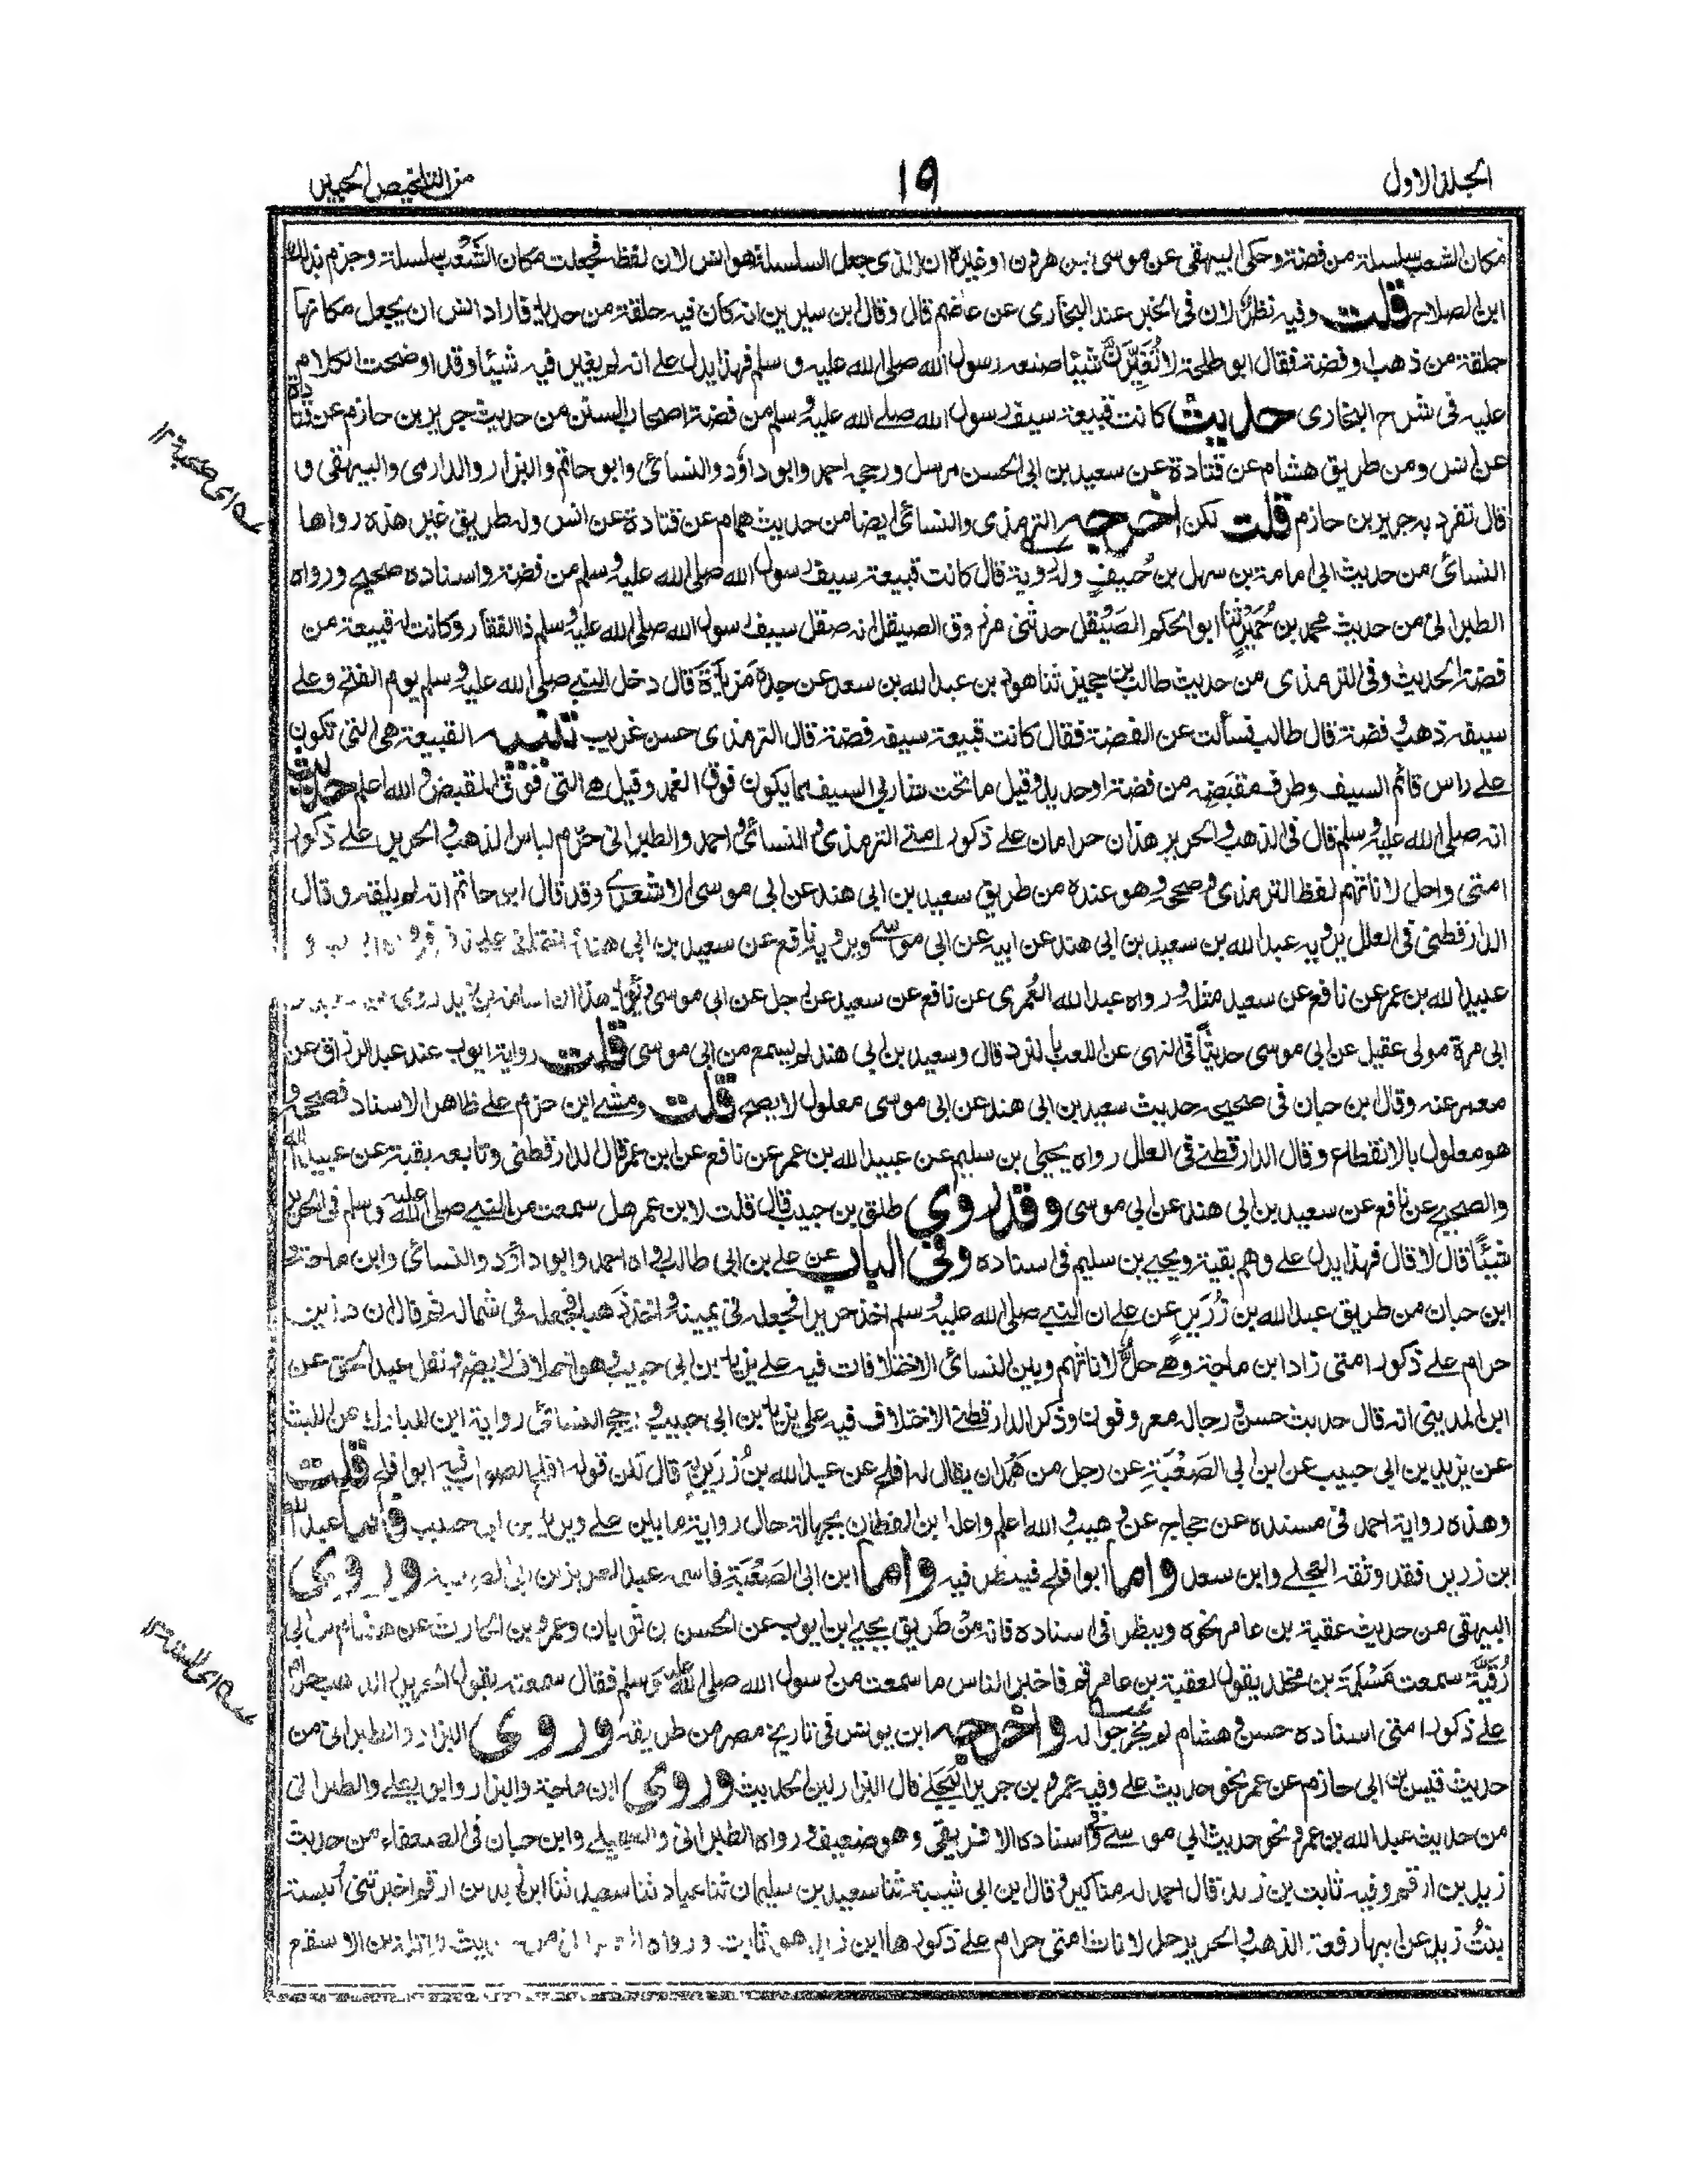 الجلد الاول
١٩
من التلخيص الحبير
مكان الشعب سلسلة من فضة وحكى البيهقى عن موسى بن هرون او غيره ان الذى جعل السلسلة هو انس لان لفظه فجعلت مكان الشَعْب سلسلة وجزم بذلك
ابن الصلاح قلت وفيه نظر لان فى الخبر عند البخارى عن عاصم قال وقال ابن سيرين انه كان فيه حلقة من حديد فاراد انس ان يجعل مكانها
حلقة من ذهب او فضة فقال ابو طلحة لا تُغَيِّرَنَّ شيئا صنعه رسول الله صلى الله عليه وسلم فهذا يدل على انه لم يغير فيه شيئا وقد اوضحت الكلام
عليه فى شرح البخارى حديث كانت قبيعة سيف رسول الله صلى الله عليه وسلم من فضة اصحاب السنن من حديث جرير بن حازم عن قتادة
عن انس ومن طريق هشام عن قتادة عن سعيد بن ابى الحسن مرسل ورجحه احمد وابو داؤد والنسائى وابو حاتم والبزار والدارمى والبيهقى و
قال تفرد به جرير بن حازم قلت لكن اخرجه الترمذى والنسائى ايضا من حديث همام عن قتادة عن انس وله طريق غير هذه رواها
النسائى من حديث ابى امامة بن سهل بن حُنيفٍ وله رؤية قال كانت قبيعة سيف رسول الله صلى الله عليه وسلم من فضة واسناده صحيح ورواه
الطبرانى من حديث محمد بن حُمَيْرٍ ثنا ابو الحكم الصَيْقل حدثنى مرزوق الصيقل انه صقل سيف رسول الله صلى الله عليه وسلم ذا الفقار وكانت له قبيعة من
فضة الحديث وفى الترمذى من حديث طالب بن حجير ثنا هود بن عبد الله بن سعد عن جده مَزِيدَةَ قال دخل النبى صلى الله عليه وسلم يوم الفتح وعلى
سيفه ذهب وفضة قال طالب فسألت عن الفضة فقال كانت قبيعة سيفه فضة قال الترمذى حسن غريب تنبيه القبيعة هى التى تكون
على راس قائم السيف وطرف مقبضه من فضة او حديد وقيل ما تحت شاربى السيف مما يكون فوق الغمد وقيل هى التى فوق المقبض والله اعلم حديث
انه صلى الله عليه وسلم قال فى الذهب والحرير هذان حرامان على ذكور امتى الترمذى والنسائى واحمد والطبرانى حرّم لباس الذهب والحرير على ذكور
امتى واحل لاناثهم لفظ الترمذى وصححه وهو عنده من طريق سعيد بن ابى هند عن ابى موسى الاشعرى وقد قال ابو حاتم انه لم يلقه وقال
الدارقطنى فى العلل يرويه عبد الله بن سعيد بن ابى هند عن ابيه عن ابى موسى ويرويه نافع عن سعيد بن ابى هند
عبيد الله بن عمر عن نافع عن سعيد مثله ورواه عبد الله العُمرى عن نافع عن سعيد عن رجل عن ابى موسى هذا ان اسامة بن زيد روى
ابى مرة مولى عقيل عن ابى موسى حديثاً فى النهى عن اللعب بالنرد قال وسعيد بن ابى هند لم يسمع من ابى موسى قلت رواية ايوب عند عبد الرزاق عن
معمر عنه وقال ابن حبان فى صحيحه حديث سعيد بن ابى هند عن ابى موسى معلول لا يصح قلت ومشى ابن حزم على ظاهر الاسناد فصححه و
هو معلول بالانقطاع وقال الدارقطنى فى العلل رواه يحيى بن سليم عن عبيد الله بن عمر عن نافع عن ابن عمر قال الدارقطنى وتابعه بقية عن عبيد الله
والصحيح عن نافع عن سعيد بن ابى هند عن ابى موسى وقد روى طلق بن حبيب قال قلت لابن عمر هل سمعت من النبى صلى الله عليه وسلم فى الحرير
شيئًا قال لا قال فهذا يدل على وهم بقية ويحيى بن سليم فى اسناده وفى الباب عن على بن ابى طالب رواه احمد وابو داؤد والنسائى وابن ماجة و
ابن حبان من طريق عبد الله بن زُرَيرٍ عن على ان النبى صلى الله عليه وسلم اخذ حريرا فجعله فى يمينه واخذ ذهبا فجعله فى شماله ثم قال ان هذين
حرام على ذكور امتى زاد ابن ماجة وهى حِلٌّ لاناثهم وبين النسائى الاختلافات فيه على يزيد بن ابى حبيب وهو اختلاف لا يضر ونقل عبد الحق عن
ابن المدينى انه قال حديث حسن ورجاله معروفون وذكر الدارقطنى الاختلاف فيه على يزيد بن ابى حبيب ورجح النسائى رواية ابن المبارك عن الليث
عن يزيد بن ابى حبيب عن ابن ابى الصَعْبَةِ عن رجل من هَمْدان يقال له افلح عن عبد الله بن زُرَيرٍ به قال لكن قوله افلح الصواب فيه ابو افلح قلت
وهذه رواية احمد فى مسنده عن حجاج عن وهيب والله اعلم واعله ابن القطان بجهالة حال رواية ما بين على ويزيد بن ابى حبيب فاما عبد الله
ابن زرير فقد وثقه العجلى وابن سعد واما ابو افلح فينظر فيه واما ابن ابى الصَعْبَةِ فاسمه عبد العزيز بن ابى الصعبة وروى
البيهقى من حديث عقبة بن عامر نحوه وينظر فى اسناده فانه مِنْ طريق يحيى بن ايوب عن الحسن بن ثوبان وعمرو بن الحارث عن هشام بن ابى
رُقَيَّة سمعت مَسْلَمَةَ بن مخلد يقول لعقبة بن عامر قم فاخبر الناس ما سمعت من رسول الله صلى الله عليه وسلم فقال سمعته يقول الحرير والذهب حرام
على ذكور امتى اسناده حسن وهشام لم يخرجوا له واخرجه ابن يونس فى تاريخ مصر من طريقه وروى البزار والطبرانى من
حديث قيس بن ابى حازم عن عمر نحو حديث على وفيه عمرو بن جرير البَجَلى قال البزار لين الحديث وروى ابن ماجة والبزار وابو يعلى والطبرانى
من حديث عبد الله بن عمرو نحو حديث ابى موسى واسناده الافريقى وهو ضعيف ورواه الطبرانى والعقيلى وابن حبان فى الضعفاء من حديث
زيد بن ارقم وفيه ثابت بن زيد قال احمد له مناكير وقال ابن ابى شيبة ثنا سعيد بن سليمان ثنا عباد ثنا سعيد ثنا ابن زيد بن ارقم اخبرتنى أنيسة
بنتُ زيد عن ابيها رفعه الذهب والحرير حل لاناث امتى حرام على ذكورها ابن زيد هو ثابت ورواه واثلة بن الاسقع